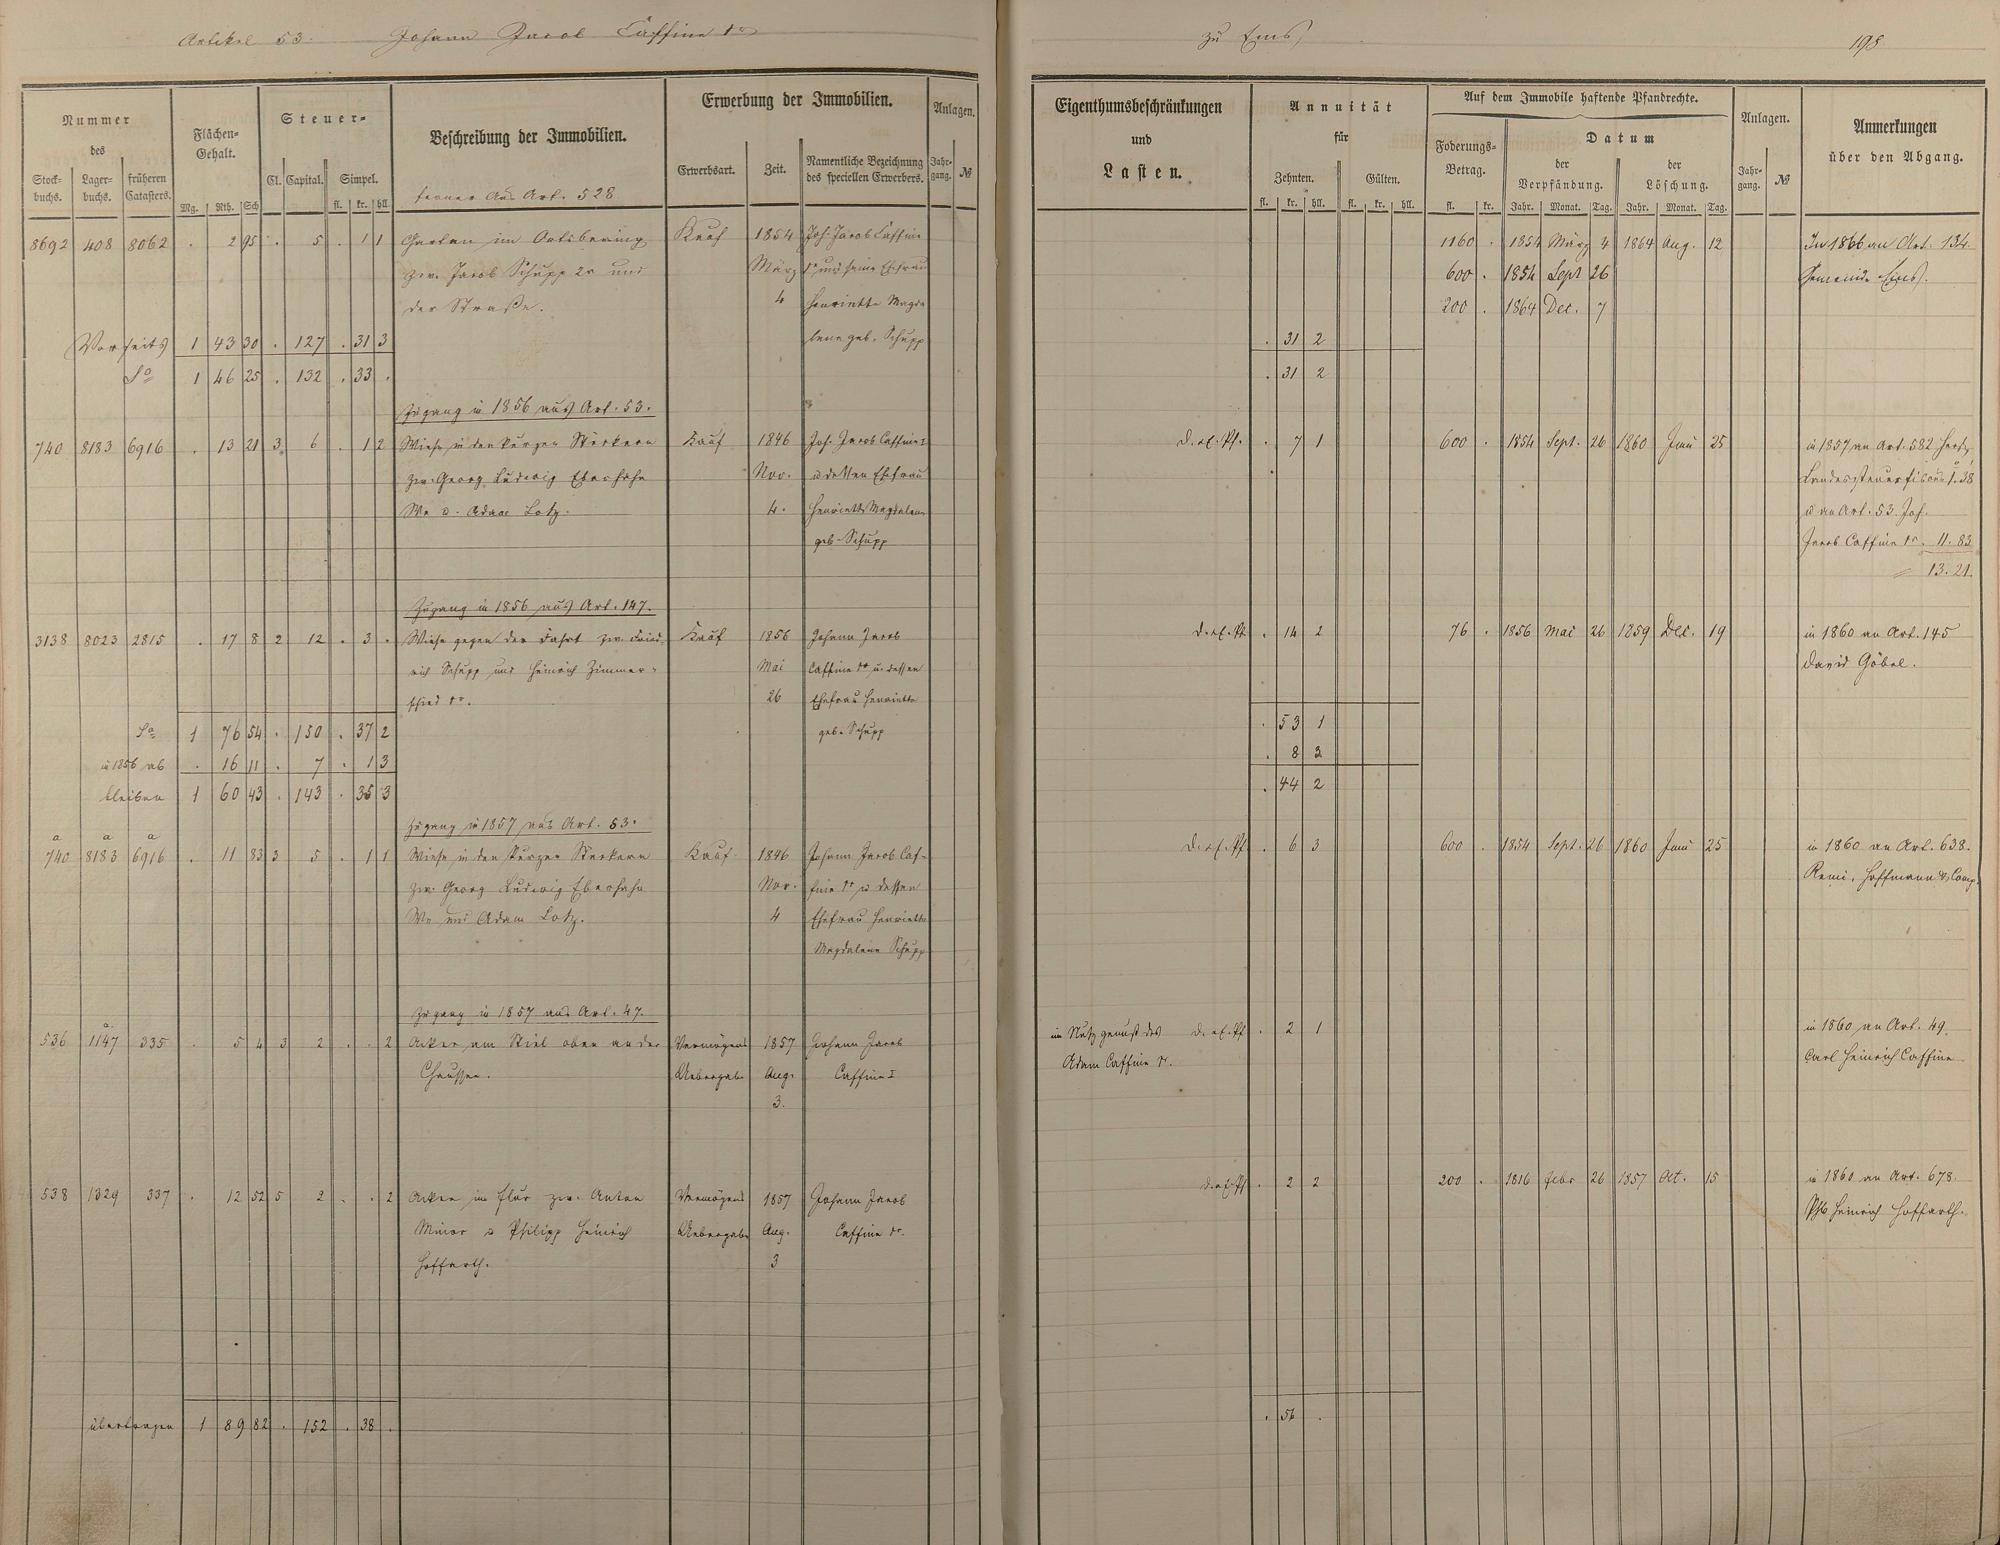 Artikel 53. Johann Jacob Caffine 1r
zu Ems,
198
Nummer
des
Stock-
buchs.
Lager-
buchs.
früheren
Catasters.
Flächen-
Gehalt.
Mg. Rth. Sch
Steuer-
Cl. Capital. Simpel.
fl. kr. hll.
Beschreibung der Immobilien.
ferner aus Art. 528
Erwerbung der Immobilien.
Erwerbsart. Zeit.
Namentliche Bezeichnung
des speciellen Erwerbers.
Anlagen.
Jahr-
gang. №
Eigenthumsbeschränkungen
und
Lasten.
Annuität
für
Zehnten. Gülten.
fl. kr. hll. fl. kr. hll.
Auf dem Immobile haftende Pfandrechte.
Foderungs-
Betrag.
fl. kr.
Datum
der
Verpfändung.
der
Löschung.
Jahr. Monat. Tag. Jahr. Monat. Tag.
Anlagen.
Jahr-
gang. №
Anmerkungen
über den Abgang.
8692 408 8062 . 2 95 . 5 . 1 1 Garten im Ortsbering Kauf 1854 Joh. Jacob Caffine 1160 . 1854 März 4 1864 Aug. 12 In 1866 an Art. 134
zw. Jacob Schupp 2r und März 1r und seine Ehefrau 600 . 1854 Sept 26 Gemeinde Ems.
der Straße. 4 Henriette Magda 200 . 1864 Dec. 7
Vorseits 1 43 30 . 127 . 31 3 lene geb. Schupp . 31 2
Sa 1 46 25 . 132 . 33 . . 31 2
Zugang in 1856 aus Art. 53.
740 8183 6916 . 13 21 3 6 . 1 2 Wiese in den kurzen Kauf 1846 Joh. Jacob Caffine I . 7 1 600 . 1854 Sept. 26 1860 Juni 25 in 1857 an Art. 582
zw. Georg Ludwig Eberhahn Nov. u dessen Ehefrau 1. 38
We u. Adam Lotz. 4. Henriette Magdalene u an Art. 53. Joh.
geb. Schupp Jacob Caffine 1r. 11. 83
13. 21.
Zugang in 1856 aus Art. 147.
3138 8023 2815 . 17 8 2 12 . 3 . Wiese gegen der Fahrt zw. Fried- Kauf 1856 Johann Jacob . 14 2 76 . 1856 Mai 26 1859 Dec. 19 in 1860 an Art. 145
rich Schupp und Heinrich Zimmer- Mai Caffine 1r u. dessen David Göbel.
schied 1r. 26 Ehefrau Henriette
Sa 1 76 54 . 150 . 37 2 geb. Schupp . 53 1
in 1856 ab . 16 11 . 7 . 1 3 . 8 3
bleiben 1 60 43 . 143 . 35 3 . 44 2
Zugang in 1857 aus Art. 53.
a a a
740 8183 6916 . 11 83 3 5 . 1 1 Wiese in den kurzen Kauf 1846 Johann Jacob Caf- . 6 3 600 . 1854 Sept. 26 1860 Juni 25 in 1860 an Art. 638.
zw. Georg Ludwig Eberhahn Nov. fine 1r u dessen Remi, Hoffmann & Comp.
We und Adam Lotz. 4 Ehefrau Henriette
Magdalene Schupp
Zugang in 1857 aus Art. 47.
a
536 1147 335 . 5 4 3 2 . . 2 Acker am Stiel oben an der Vermögens 1857 Johann Jacob im Nutzgenuß des . 2 1 in 1860 an Art. 49.
Chaussee. Uebergabe Aug. Caffine I Adam Caffine 1r. Carl Heinrich Caffine
3.
538 1329 337 . 12 52 5 2 . . 2 Acker im Flur zw. Anton Vermögens 1857 Johann Jacob . 2 2 200 . 1816 Febr 26 1857 Oct. 15 in 1860 an Art. 678
Minor u Philipp Heinrich Uebergabe Aug. Caffine 1r. Phil. Heinrich Hoffarth.
Hoffarth. 3
übertragen 1 89 82 . 152 . 38 . . 56 .